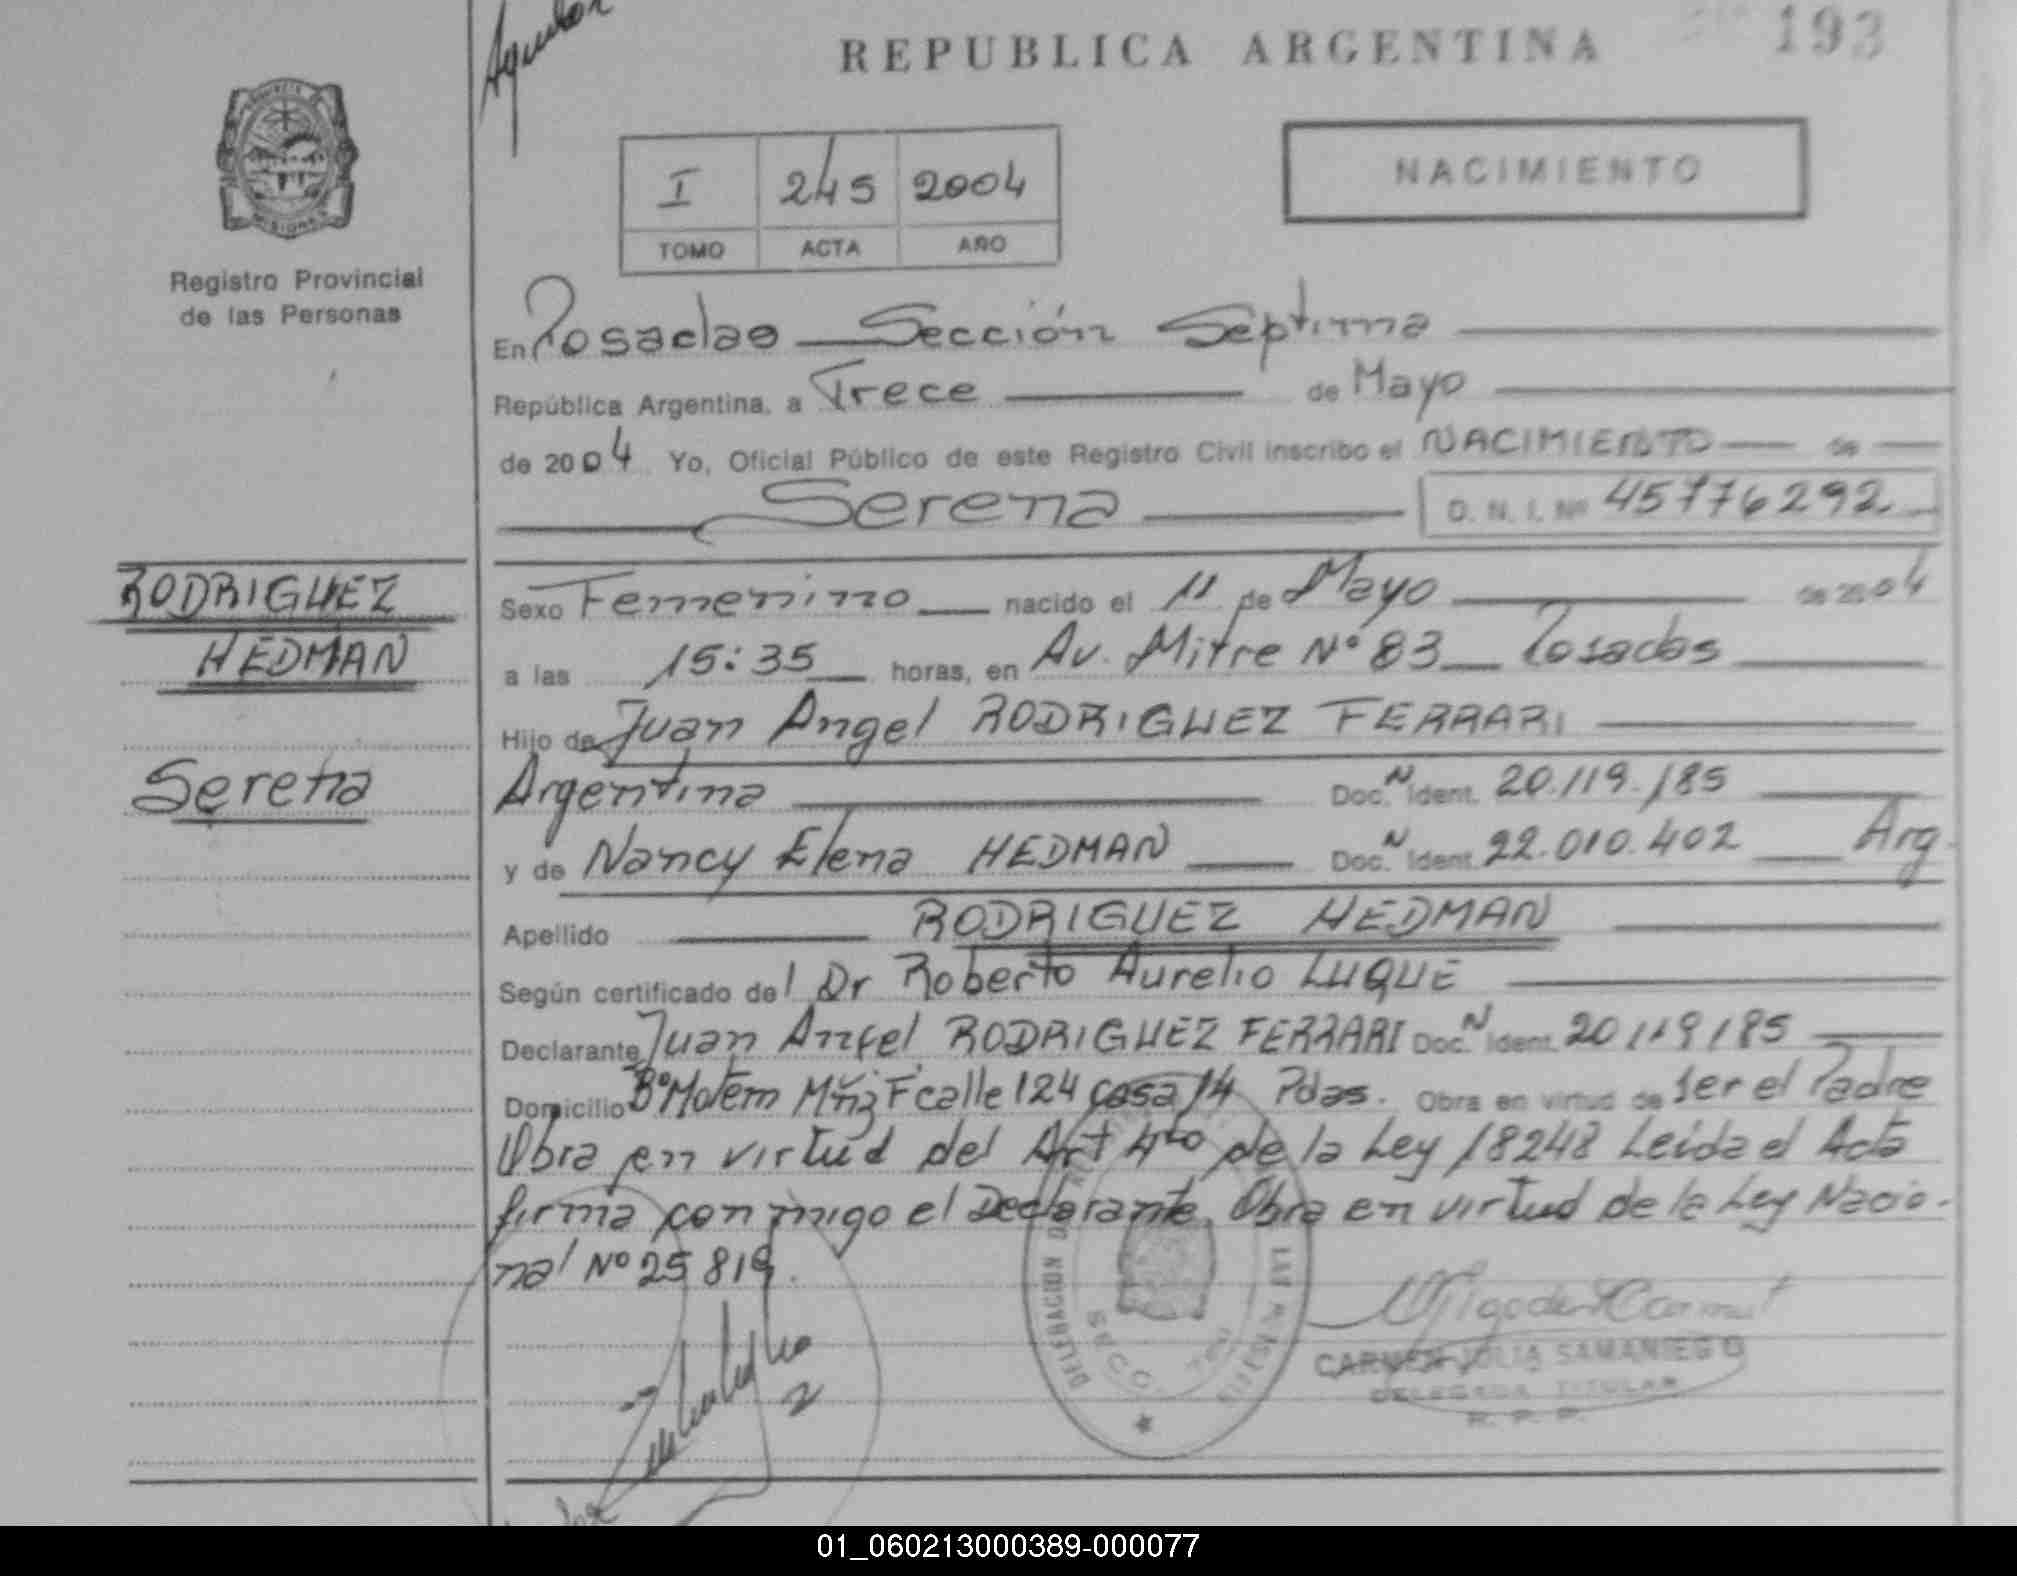 Aguilar
REPUBLICA ARGENTINA
193
NACIMIENTO
I 245 2004
TOMO ACTA AÑO
PROVINCIA DE MISIONES
Registro Provincial
de las Personas
En Posadas Sección Séptima
República Argentina, a Trece de Mayo
de 2004 Yo, Oficial Público de este Registro Civil inscribo el NACIMIENTO de
Serena D. N. I. Nº 45776292
RODRIGUEZ
HEDMAN
Serena
Sexo Femenino nacido el 11 de Mayo de 2004
a las 15:35 horas, en Av. Mitre Nº 83 Posadas
Hijo de Juan Angel RODRIGUEZ FERRARI
Argentina Doc. N Ident. 20.119.185
y de Nancy Elena HEDMAN Doc. N Ident. 22.010.402 Arg.
Apellido RODRIGUEZ HEDMAN
Según certificado del Dr Roberto Aurelio LUQUE
Declarante Juan Angel RODRIGUEZ FERRARI Doc. N Ident. 20119185
Domicilio Bº calle 124 casa 14 Pdas. Obra en virtud de ser el Padre
Obra en virtud del Art 4to de la Ley 18248 Leida el Acta
firma conmigo el Declarante. Obra en virtud de la Ley Nacio-
nal Nº 25819.
DELEGACION LAS
SECC.
CARMEN JULIA SAMANIEGO
DELEGADA TITULAR
R. P. P.
01_060213000389-000077